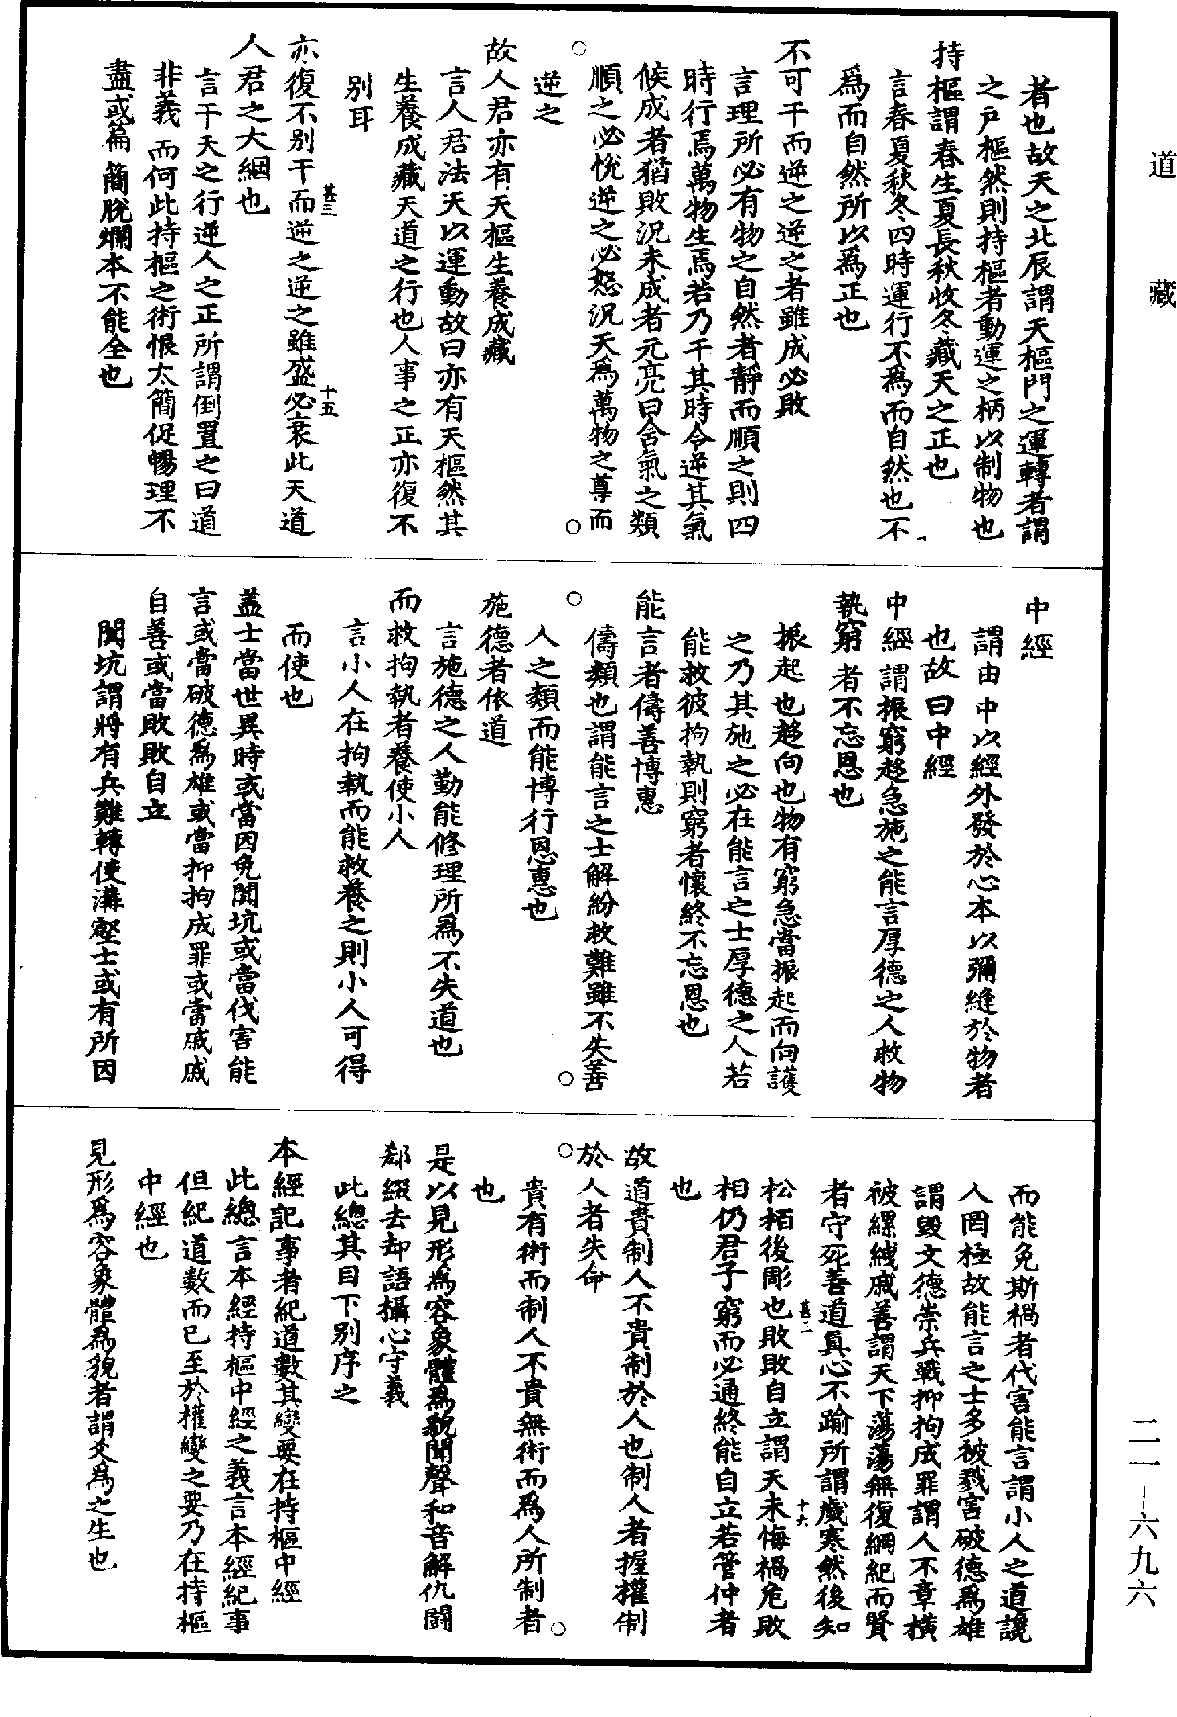 道藏
者也故天之北辰謂天樞門之運轉者謂
之戶樞然則持樞者動運之柄以制物也
持樞謂春生夏長秋收冬藏天之正也
言春夏秋冬四時運行不為而自然也不
為而自然所以為正也
不可干而逆之逆之者雖成必敗
言理所必有物之自然者靜而順之則四
時行焉萬物生焉若乃干其時令逆其氣
候成者猶敗況未成者元亮曰含氣之類
順之必悅逆之必怒況天為萬物之尊而
逆之
故人君亦有天樞生養成藏
言人君法天以運動故曰亦有天樞然其
生養成藏天道之行也人事之正亦復不
別耳
亦復不別干而逆之逆之雖盛必衰此天道
甚三
十五
人君之大綱也
言干天之行逆人之正所謂倒置之曰道
非義而何此持樞之術恨太簡促暢理不
盡或篇簡脫爛本不能全也
中經
謂由中以經外發於心本以彌縫於物者
也故曰中經
中經謂振窮趍急施之能言厚德之人救物
執窮者不忘恩也
振起也趍向也物有窮急當振起而向護
之乃其施之必在能言之士厚德之人若
能救彼拘執則窮者懷終不忘恩也
能言者儔善博惠
儔類也謂能言之士解紛救難雖不失善
人之類而能博行恩惠也
施德者依道
言施德之人勤能修理所為不失道也
而救拘執者養使小人
言小人在拘執而能救養之則小人可得
而使也
蓋士當世異時或當因免闐坑或當伐害能
言或當破德為雄或當抑拘成罪或當戚戚
自善或當敗敗自立
闐坑謂將有兵難轉使溝壑士或有所因
而能免斯禍者代害能言謂小人之道讒
人罔極故能言之士多被戮害破德為雄
謂毀文德崇兵戰抑拘成罪謂人不章橫
被縲絏戚善謂天下蕩蕩無復綱紀而賢
者守死善道真心不踰所謂歲寒然後知
松栢後彫也敗敗自立謂天未悔禍危敗
甚二
十六
相仍君子窮而必通終能自立若管仲者
也
故道貴制人不貴制於人也制人者握權制
於人者失命
貴有術而制人不貴無術而為人所制者
也
是以見形為容象體為貌聞聲和音解仇鬪
郄綴去却語攝心守義
此總其目下別序之
本經記事者紀道數其變要在持樞中經
此總言本經持樞中經之義言本經紀事
但紀道數而已至於權變之要乃在持樞
中經也
見形為容象體為貌者謂爻為之生也
二一—六九六